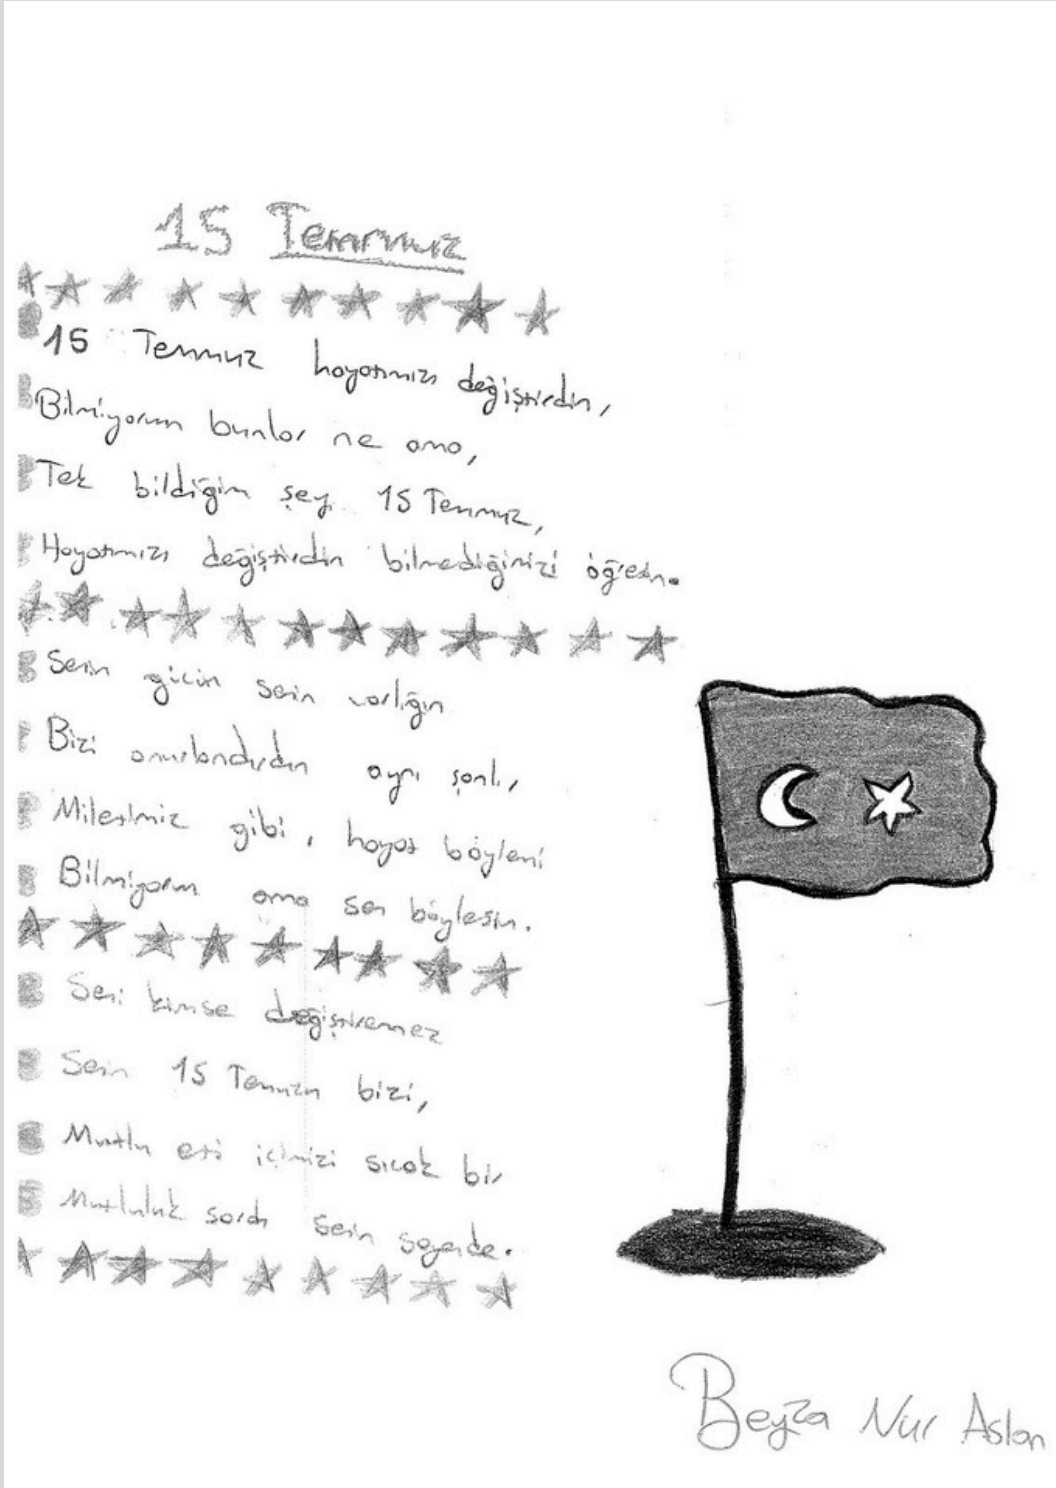 15 Temmuz
15 Temmuz hayatımızı değiştirdin,
Bilmiyorum bunlar ne ama,
Tek bildiğim şey 15 Temmuz,
Hayatımızı değiştirdin bilmediğimizi öğretin.
Senin gücün senin varlığın
Bizi onurlandırdın aynı şanlı,
Miletimiz gibi, hayat böylemi
Bilmiyorum ama sen böylesin.
Seni kimse değiştiremez
Senin 15 Temmuzu bizi,
Mutlu etti içimizi sıcak bir
Mutluluk sardı senin sayende.
Beyza Nur Aslan